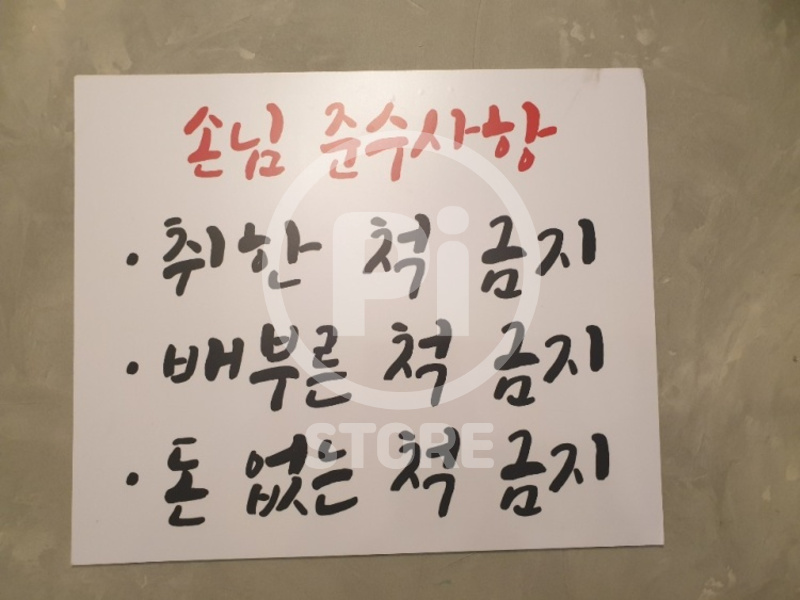 손님 준수사항
· 취한 척 금지
· 배부른 척 금지
· 돈 없는 척 금지
Pi
STORE